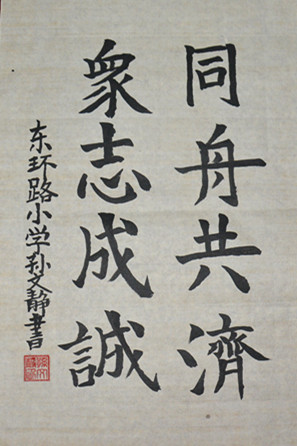 同舟共濟
衆志成誠
东环路小学孙文静書